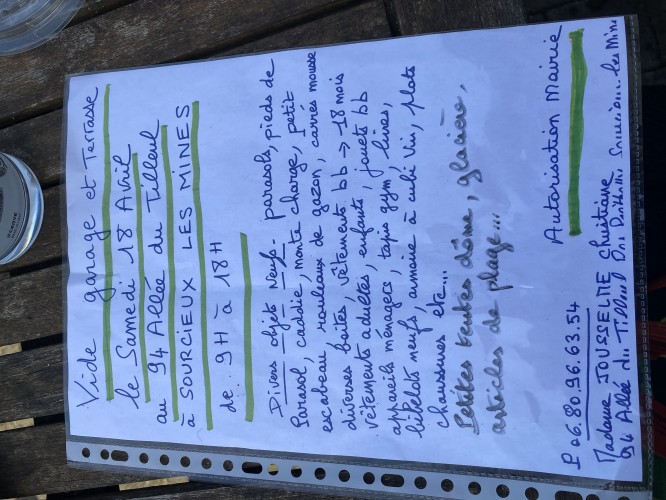 Vide garage et Terrasse
le Samedi 18 Avril
au 94 Allée du Tilleul
à SOURCIEUX LES MINES
de 9H à 18H
Divers objets Neufs. parasols, pieds de
Parasol, caddie, monte charge, petit
escabeau rouleaux de gazon, carrés mousse
diverses boites, vêtements bb → 18 mois
vêtements adultes, enfants, jouets bb
appareils ménagers, tapis gym, livres,
bibelots neufs, armoire à cubi Vin, plats
chaussures etc...
Petites tentes dôme, glacière,
articles de plage...
Autorisation Mairie
P 06.80.96.63.54
Madame JOUSSELME Christiane
94 Allée du Tilleul les Mines